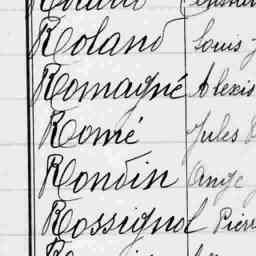 Roland Louis
Romagné Alexis
Romé Jules
Rondin Ange
Rossignol Pierre